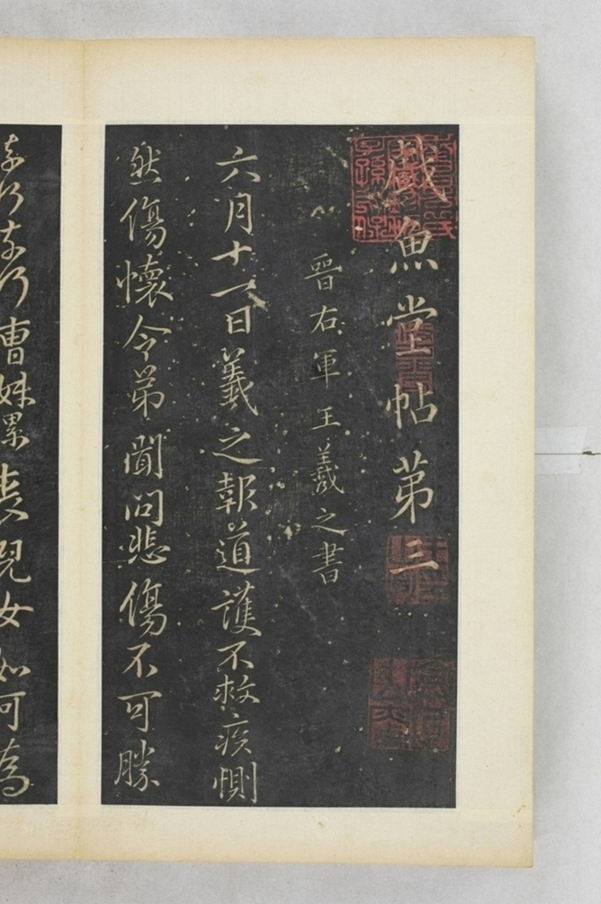 戲魚堂帖第三
晉右軍王羲之書
六月十一日羲之報道護不救疾惻
然傷懷令弟聞問悲傷不可勝
奈何奈何曹妹累喪兒女如何為